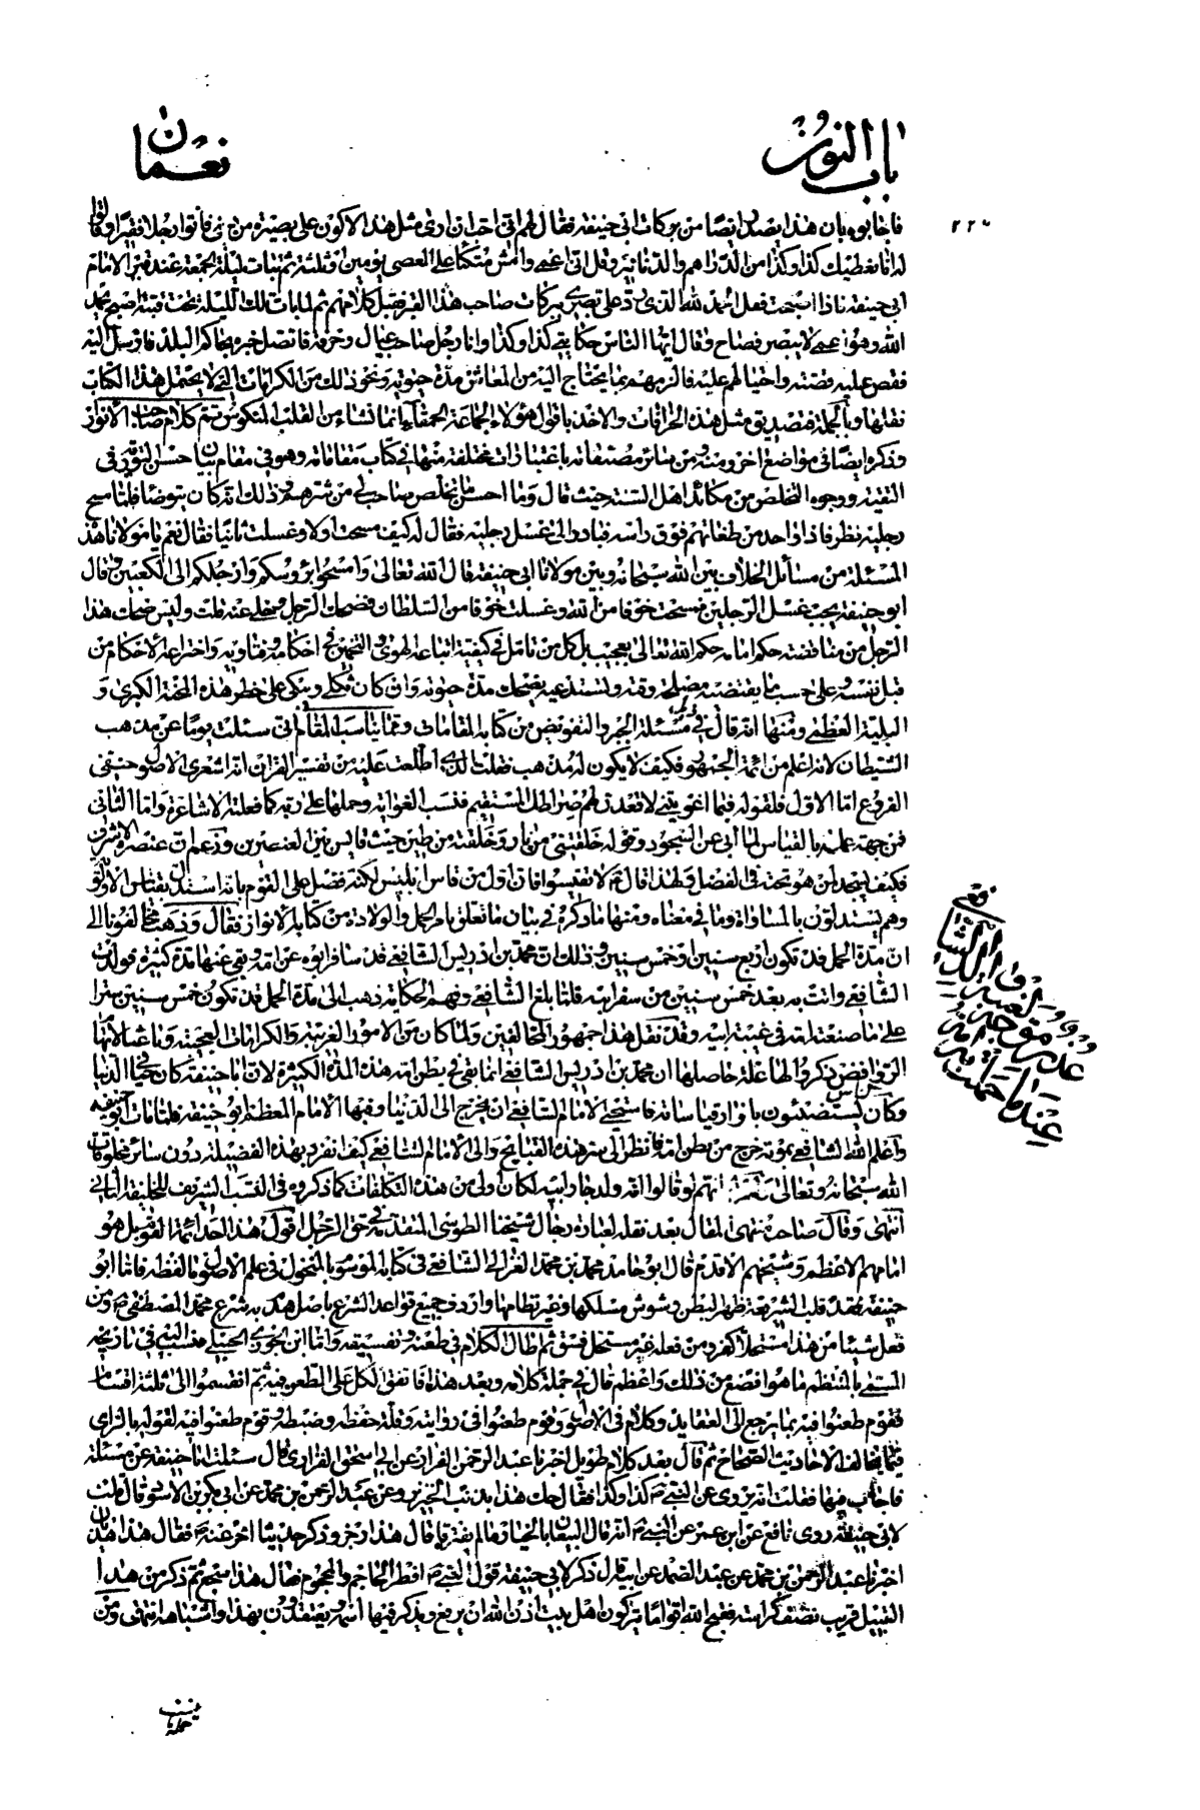 باب النون
نعمان
٢٢٧
فاجابوه بان هذا يصدر ايضا من بركات ابي حنيفة فقال لهم اني احب ان ارى مثل هذا لاكون على بصيرة من ديني فاتوا رجلا فقيرا وقالوا
له انا نعطيك كذا وكذا من الدراهم والدنانير وقل اني اعمى وامش متكئا على العصى يومين او ثلثة ثم تبات ليلة الجمعة عند قبر الامام
ابي حنيفة فاذا اصبحت فقل الحمد لله الذي رد على بصري ببركات صاحب هذا القبر فقبل كلامهم ثم لما بات تلك الليلة تحت قبته اصبح بحمد
الله وهو اعمى لا يبصر فصاح وقال ايها الناس حكايتي كذا وكذا وانا رجل صاحب عيال وحرفة فاتصل خبره بحاكم البلد فارسل اليه
فقص عليه قصته واحتيالهم عليه فالزمهم بما يحتاج اليه من المعاش مدة حيوته ونحو ذلك من الكرامات التي لا يحتمل هذا الكتاب
نقلها وبالجملة فتصديق مثل هذه الخرافات والاخذ باقوال هؤلاء الجماعة الحمقاء انما نشاء من القلب المنكوس تم كلام صاحب الانوار
وذكر ايضا في مواضع اخر منه ومن سائر مصنفاته باعتبارات مختلفة منها في كتاب مقاماته وهو في مقام بيان حسن التورية في
التقية ووجوه التخلص من مكائد اهل السنة حيث قال وما احسن ما تخلص صاحب لي من شرهم وذلك انه كان يتوضأ فلما مسح
رجليه نظر فاذا واحد من طغاتهم فوق راسه فبادر الى غسل رجليه فقال له كيف مسحت اولا وغسلت ثانيا فقال نعم يا مولانا هذه
المسئلة من مسائل الخلاف بين الله سبحانه وبين مولانا ابي حنيفة قال الله تعالى وامسحوا برؤسكم وارجلكم الى الكعبين وقال
ابو حنيفة يجب غسل الرجلين فمسحت خوفا من الله وغسلت خوفا من السلطان فضحك الرجل وخلى عنه قلت وليس ضحك هذا
الرجل من مناقضة حكم امامه حكم الله تعالى بعجيب بل كل من تامل في كيفية اتباعه الهوى والتخمين في احكامه وفتاويه واختراعه الاحكام من
قبل نفسه على حسب ما يقتضيه مصلحة وقته وتستدعيه يضحك مدة حيوته وان كان ثكلى ويبكي على خطر هذه المحنة الكبرى و
البلية العظمى ومنها انه قال في ذكر مسئلة الجبر والتفويض من كتابه المقامات ومما يناسب المقام اني سئلت يوما عن مذهب
الشيطان لانه اعلم من ائمة الجمهور فكيف لا يكون له مذهب فقلت الذي اطلعت عليه من تفسير القران انه اشعري الاصول حنيفي
الفروع اما الاول فلقوله فبما اغويتني لاقعدن لهم صراطك المستقيم فنسب الغواية وحملها على ربه كما فعلته الاشاعرة واما الثاني
فمن جهة عمله بالقياس لما ابى عن السجود وقوله خلقتني من نار وخلقته من طين حيث قايس بين العنصرين وزعم ان عنصره الاشرف
فكيف يسجد لمن هو تحته في الفضل ولهذا قال ع لا تقيسوا فان اول من قاس ابليس لكنه فضل على القوم بانه استدل بقياس الاولوية
وهم يستدلون بالمساواة وما في معناه ومنها ما ذكره في بيان ما تعلق بامر الحمل والولادة من كتابه الانوار فقال وذهب مخالفونا الى
ان مدة الحمل قد تكون اربع سنين وخمس سنين وذلك ان محمد بن ادريس الشافعي قد سافر ابوه عن امه وبقي عنها مدة كثيرة فولدت
الشافعي واتت به بعد خمس سنين من سفر ابيه فلما بلغ الشافعي وفهم الحكاية ذهب الى ان مدة الحمل قد تكون خمس سنين سترا
على ما صنعته امه في غيبة ابيه وقد نقل هذا جمهور المخالفين ولما كان من الامور الغريبة والكرامات العجيبة وناعشا لانها
الروافض ذكروا لها علة حاصلها ان محمد بن ادريس الشافعي انما بقي في بطن امه هذه المدة الكثيرة لان ابا حنيفة كان حيا في الدنيا
وكان الناس يستضيئون بانوار قياساته فاستحيى الامام الشافعي ان يخرج الى الدنيا وفيها الامام المعظم ابو حنيفة فلما مات ابو حنيفة
واعلم الله الشافعي بموته خرج من بطن امه فانظر الى ستر هذه القبايح والى الامام الشافعي كيف تفرد بهذه الفضيلة دون سائر مخلوقات
الله سبحانه وتعالى نعم انهم لو قالوا انه ولد جار ابيه لكان اولى من هذه التكلفات كما ذكروه في النسب الشريف للخليفة الثاني
انتهى وقال صاحب منتهى المقال بعد نقله لعبارة رجال شيخنا الطوسي المتقدمة في حق الرجل اقول هذا احد ائمة القوم بل هو
امامهم الاعظم وشيخهم الاقدم قال ابو حامد محمد بن محمد الغزالي الشافعي في كتابه الموسوم بالمنخول في علم الاصول ما لفظه فاما ابو
حنيفة فقد قلب الشريعة ظهرا لبطن وشوش مسلكها وغير نظامها واردف جميع قواعد الشرع باصل هدم به شرع محمد المصطفى ص ومن
فعل شيئا من هذا مستحلا كفر ومن فعله غير مستحل فسق ثم اطال الكلام في طعنه وتفسيقه واما ابن الجوزي الحنبلي في تاريخه
المسمى بالمنتظم فاهو افضع من ذلك واعظم قال في جملة كلامه وبعد هذا فاتفق الكل على الطعن فيه ثم انقسموا الى ثلثة اقسام
فقوم طعنوا فيه بما يرجع الى العقايد وكلام في الاصول وقوم طعنوا في روايته وقلة حفظه وضبطه وقوم طعنوا فيه لقوله بالراي
فيما يخالف الاحاديث الصحاح ثم قال بعد كلام طويل اخبرنا عبد الرحمن القزاز عن ابي اسحق الفزاري قال سئلت ابا حنيفة عن مسئلة
فاجاب فيها فقلت انه يروى عن النبي ص كذا وكذا فقال حك هذا بذنب الخنزير وعن عبد الرحمن بن محمد عن ابي بكر بن الاسود قال قلت
لابي حنيفة روى نافع عن ابن عمر عن النبي ص انه قال البيعان بالخيار ما لم يفترقا قال هذا رجز وذكر حديثا اخر عنه ص فقال هذا هذيان
اخبرنا عبد الرحمن بن محمد عن عبد الصمد عن ابيه قال ذكر لابي حنيفة قول النبي ص افطر الحاجم والمحجوم فقال هذا سجع ثم ذكر من هذا
القبيل قريب نصف كراسة فقبح الله اقواما يتركون اهل بيت اذن الله ان يرفع ويذكر فيها اسمه ويعتقدون بهذا واشباهه انتهى ومن